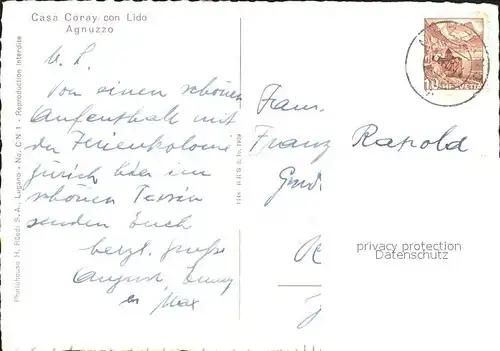 Casa Coray con Lido
Agnuzzo
M. L.
Von einen schönen
Aufenthalt mit
der Ferienkolonie
Zürich hier im
schönen Tessin
senden Euch
herzl. Grüsse
August, Emmy
en Max
Fam.
Franz Rapold
HELVETIA
privacy protection
Datenschutz
Photohouse H. Rüedi S. A., Lugano - No. C/N. 1 - Reproduction interdite